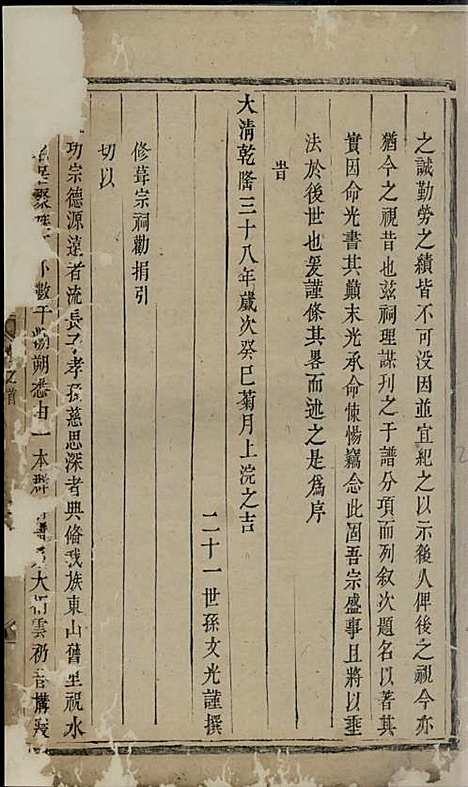 之誠勤勞之績皆不可没因並宜紀之以示後人俾後之視今亦
猶今之視昔也兹祠理謀刋之于譜分項而列叙次題名以著其
實因命光書其顛末光承命悚惕竊念此固吾宗盛事且將以垂
法於後世也爰謹條其畧而述之是爲序
旹
大清乾隆三十八年歲次癸巳菊月上浣之吉
二十一世孫文光謹撰
修葺宗祠勸捐引
切以
功宗德源遠者流長子孝孫慈思深者典脩我族東山舊里祝水
聚族 數千 朔悉由一本群 大 雲礽
之首